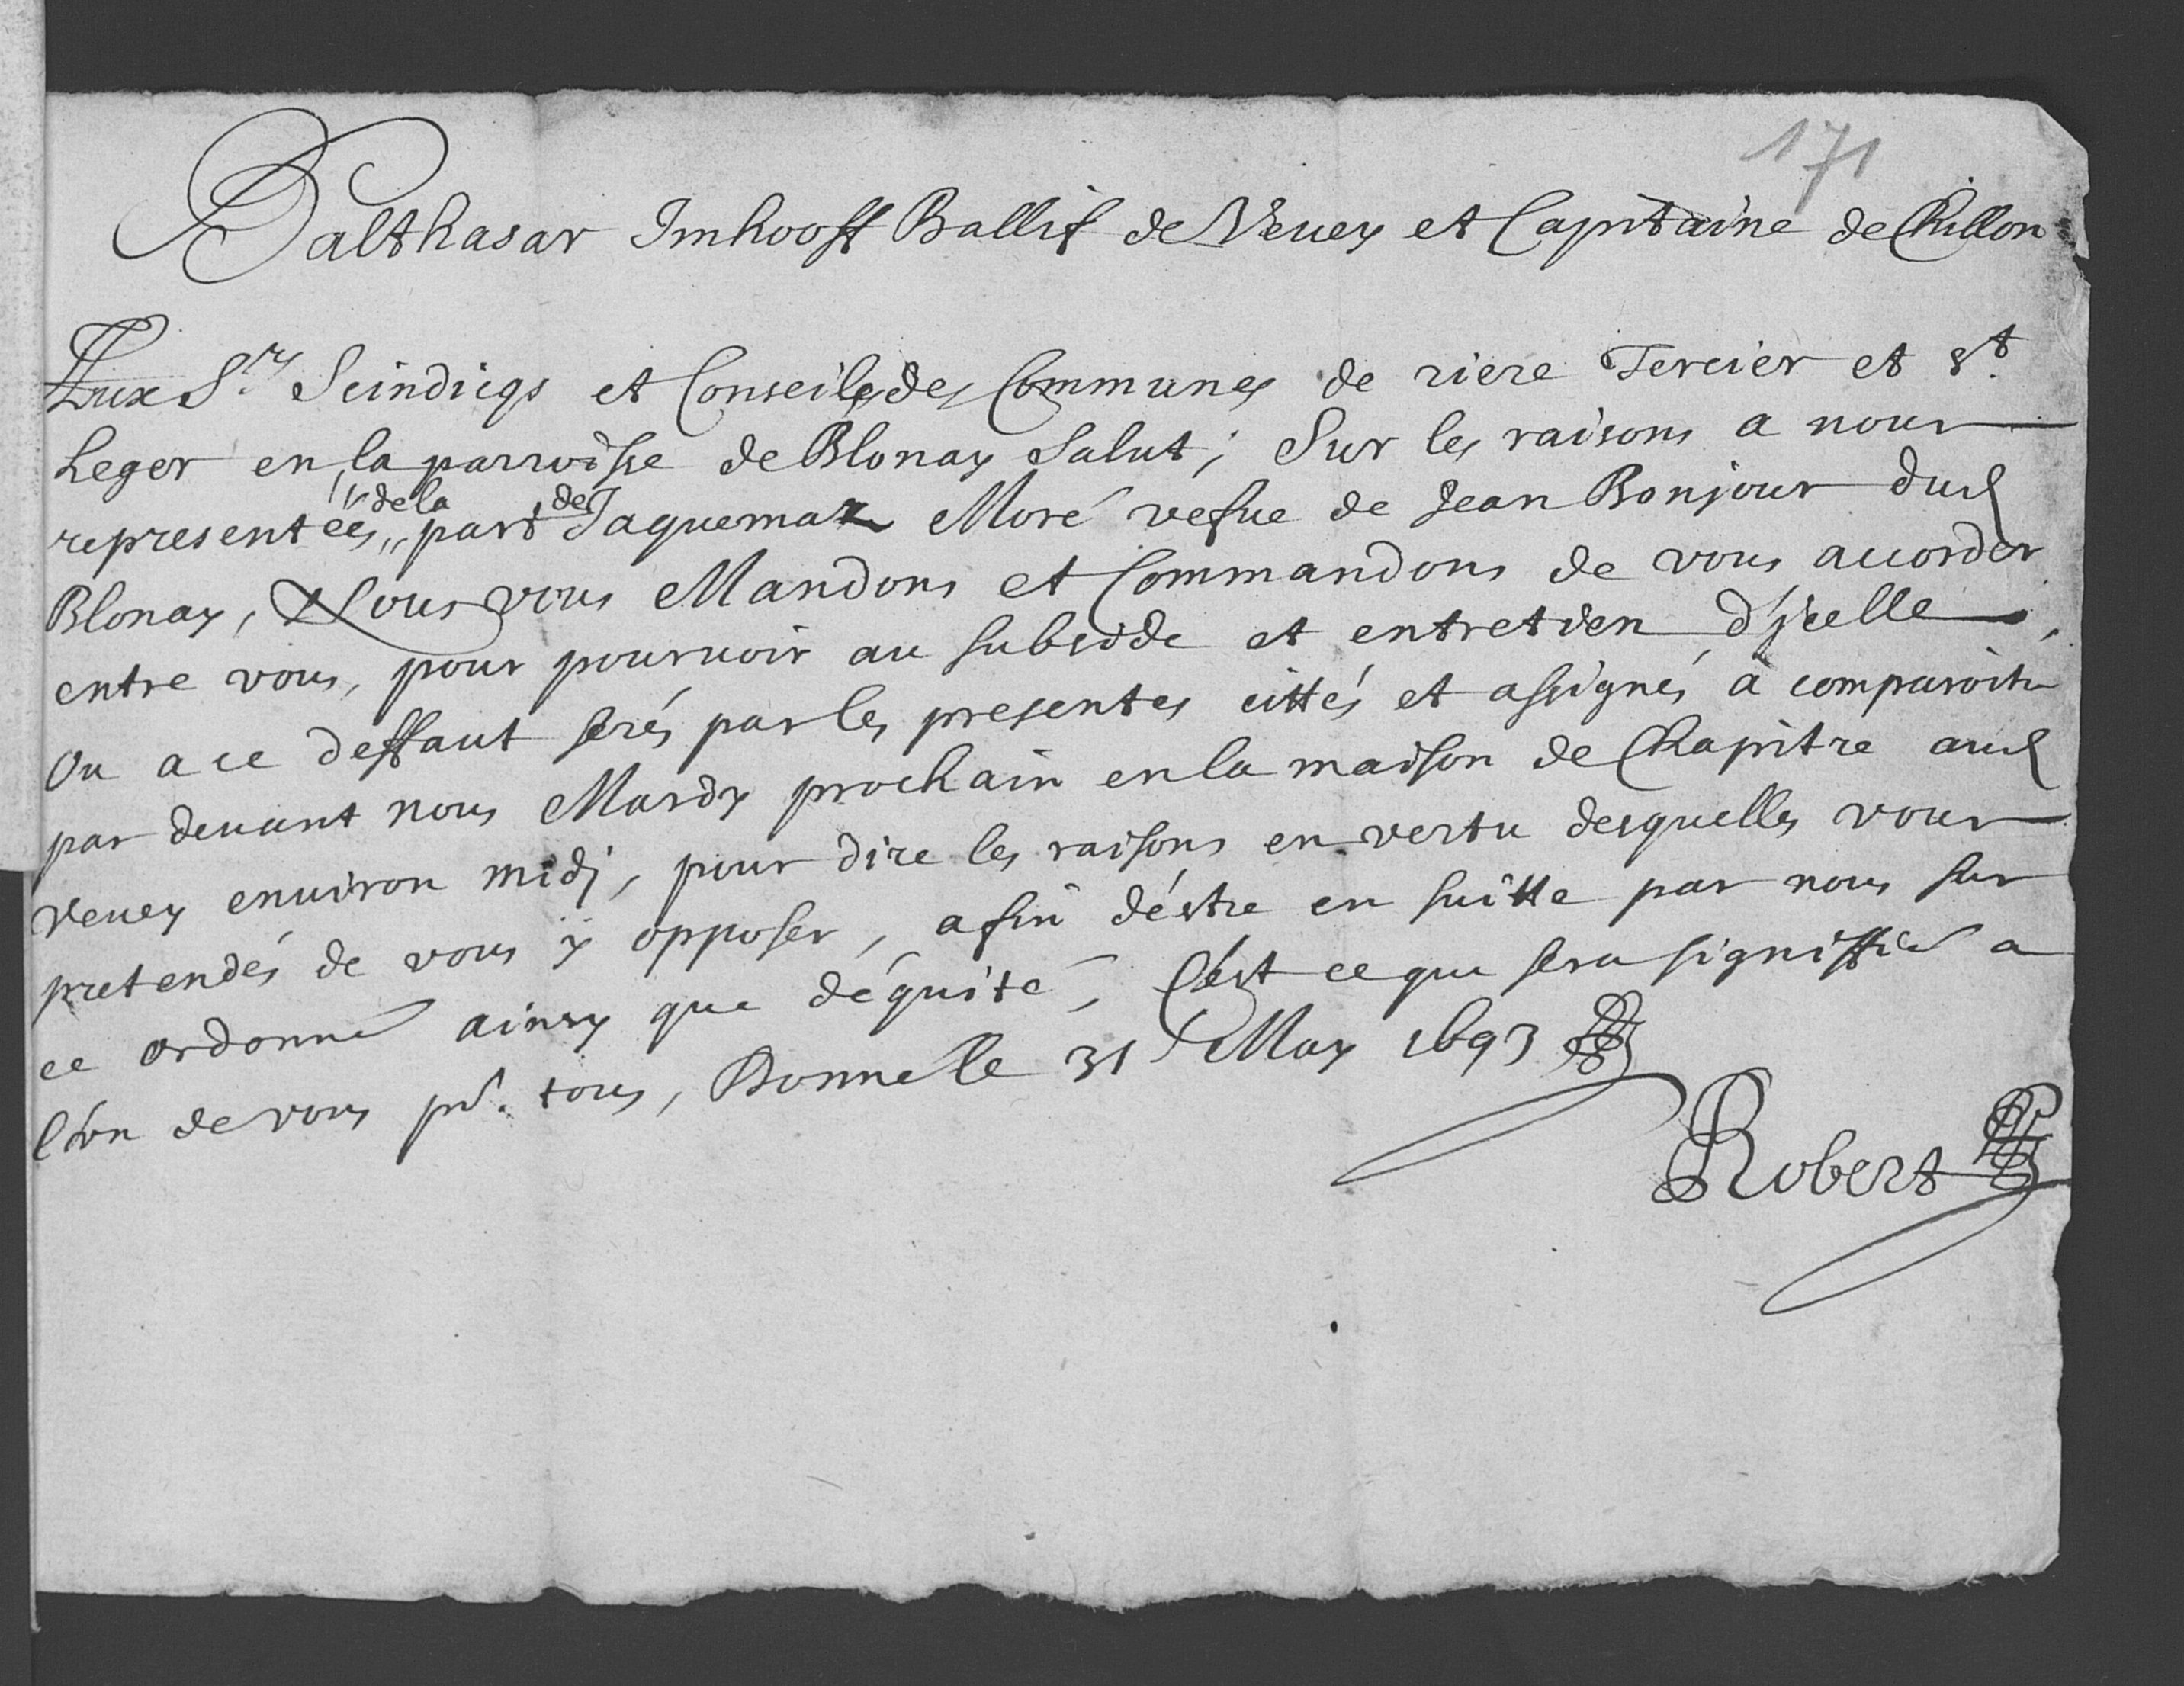 171
Balthasar Imhooff Ballif de Veuey et Capitaine de Chillon
Aux S.rs Scindicqs et Conseils des Communes de riere Tercier et S.t
Leger en la parroisse de Blonay Salut; Sur les raisons a nous
representées, de la part de Jaquemaz Moré vefue de Jean Bonjour dud
Blonay, Nous vous Mandons et Commandons de vous accorder
entre vous, pour pouruoir au subside et entretien d'icelle,
Ou a ce deffaut serés par les presentes cittés et assignés à comparoitre
par deuant nous Mardy prochain en la maison de Chapitre aud
Veuey enuiron midj, pour dire les raisons en vertu desquelles vous
pretendés de vous y opposer, afin d'éstre en suitte par nous sur
ce ordonné ainsy que d'équité, C'est ce que sera signiffié a
l'ún de vous pr. tous, Donné le 31e May 1693
Robert